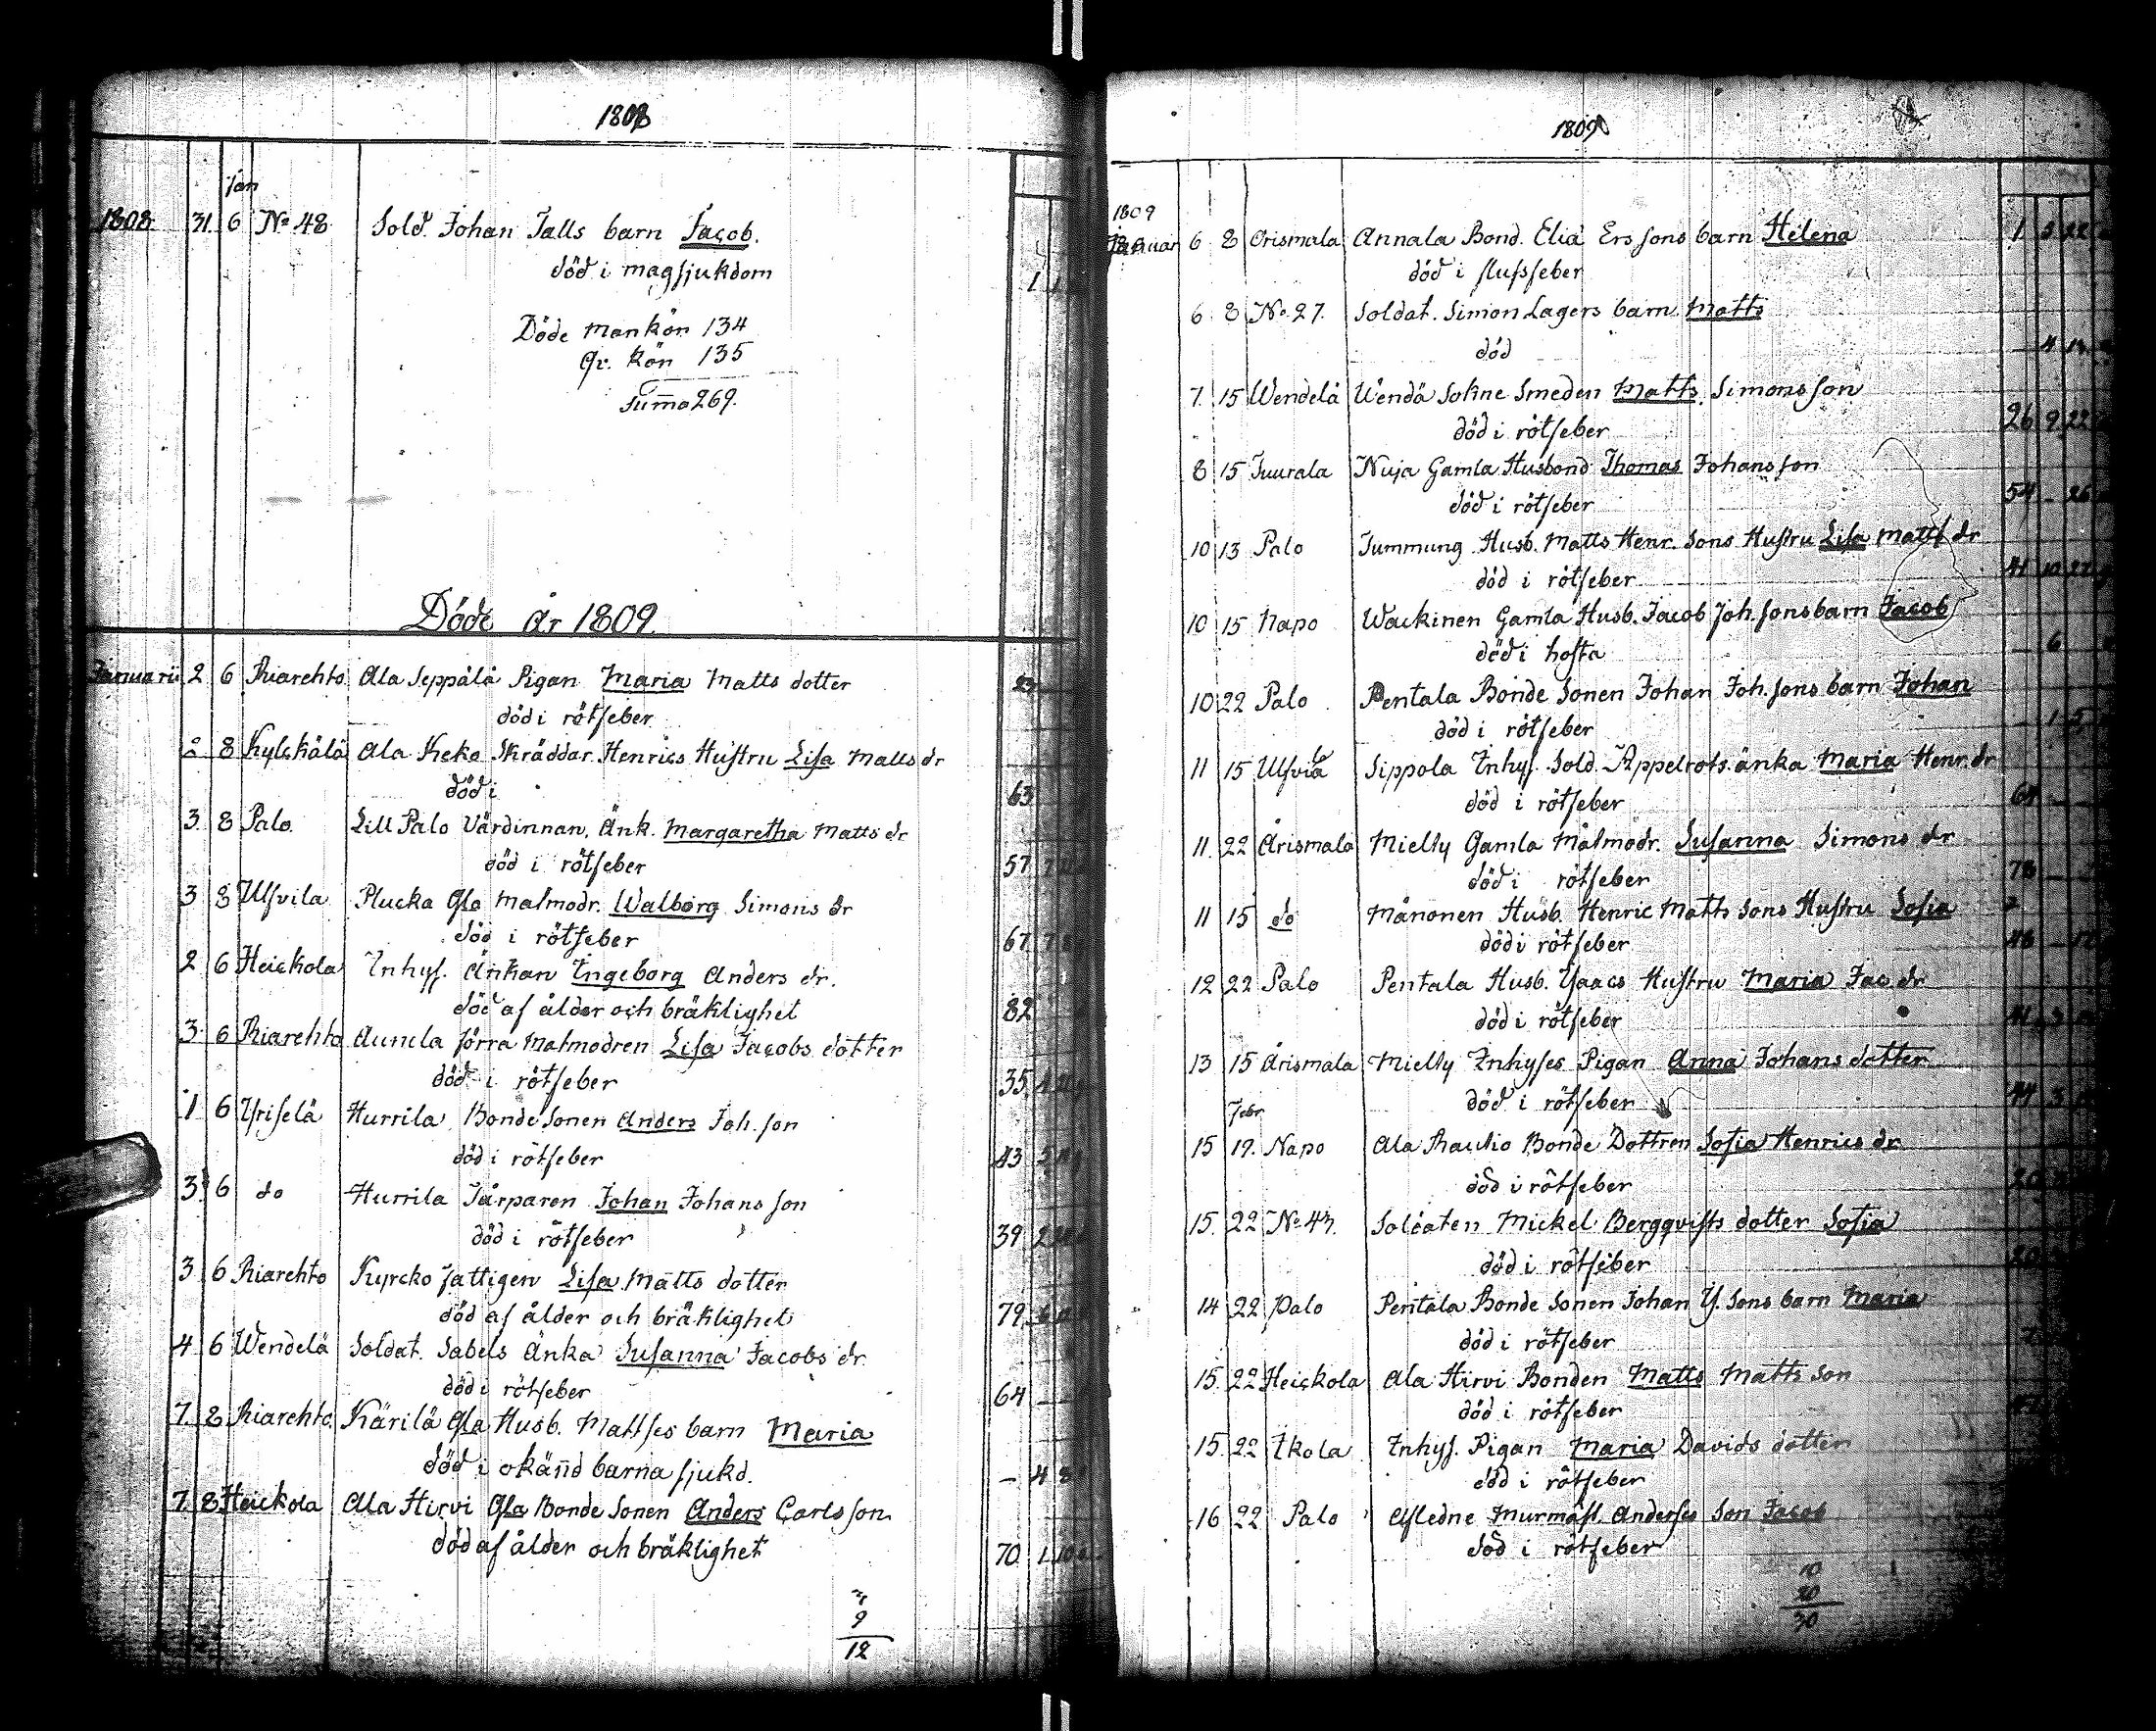 1808
Jan
1808 31 6 No 48 Sold. Johan Talls barn Jacob.
död i magsjukdom
1 1
Döde mankön 134
Qv. kön 135
Suma 269.
Döde år 1809.
Januarii 2 6 Riarehto Ala Seppälä Pigan Maria Matts dotter
död i rötfeber
2 8 Kylckälä Ala Keko Skräddar Henrics Hustru Lisa Matts dr
död i 63
3 8 Palo Lill Palo Värdinnan, Änk. Margaretha Matts dr
död i rötfeber 57 7
3 8 Ulfvila Plucka Gla Matmodr. Walborg Simons dr
död i rötfeber 67 7
2 6 Heickola Inhys. Änkan Ingeborg Anders dr.
död af ålder och bräklighet 82
3 6 Riarehto Aunela Jörra Matmodren Lisa Jacobs dotter
död i rötfeber 35
1 6 Yriselä Hurrila Bonde Sonen Anders Joh. son
död i rötfeber 43
3 6 do Hurrila Torparen Johan Johans son
död i rötfeber 39
3 6 Riarehto Kyrcko fattigen Lisa Matts dotter
död af ålder och bräklighet 79
4 6 Wendelä Soldat. Sabels Änka Susanna Jacobs dr
död i rötfeber 64
7 8 Riarehto Kärilä Gla Husb. Mattses barn Maria
död i okänd barna sjukd. – 4 8
7 8 Heickola Ala Hirvi Gla Bonde Sonen Anders Carls son
död af ålder och bräklighet 70 1 10
9
12
1809
1809
Januar 6 8 Orismala Annala Bond. Elia Ers sons barn Helena 1 3 22
död i flussfeber
6 8 No 27. Soldat. Simon Lagers barn Matts
död – 4
7 15 Wendelä Wendä Sokne Smeden Matts Simons son
död i rötfeber 26 9 22
8 15 Tuurala Nuja Gamla Husbond Thomas Johans son
död i rötfeber 54 – 26
10 13 Palo Tummung Husb. Matts Henr. Sons Hustru Lisa Matts dr
död i rötfeber 41 10 22
10 15 Napo Wackinen Gamla Husb. Jacob Joh. sons barn Jacob
död i hosta – 6
10 22 Palo Pentala Bonde Sonen Johan Joh. sons barn Johan
död i rötfeber – 1 5
11 15 Ulfvila Sippola Inhys. Sold. Appelrots änka Maria Henr. dr
död i rötfeber
11 22 Orismala Mielty Gamla Matmodr. Susanna Simons dr
död i rötfeber 78
11 15 do Månonen Husb. Henric Matts Sons Hustru Sofia
död i rötfeber
12 22 Palo Pentala Husb. Ysaacs Hustru Maria Jac dr
död i rötfeber
13 15 Orismala Mielty Inhyses Pigan Anna Johans dotter
död i rötfeber 44 3
Febr
15 19. Napo Ala Rautio Bonde Dottren Sofia Henrics dr
död i rötfeber 20
15 22 No 47. Soldaten Mickel Bergqvists dotter Sofia
död i rötfeber 20
14 22 Palo Pentala Bonde Sonen Johan Y. Sons barn Maria
död i rötfeber 7
15 22 Heickola Ala Hirvi Bonden Matts Matts son
död i rötfeber
15 22 Ikola Inhys. Pigan Maria Davids dotter
död i rötfeber
16 22 Palo Afledne Murmäst. Anderses Son Jacob
död i rötfeber
10
20
30